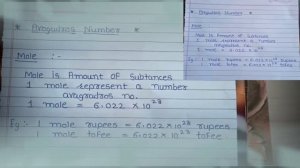 * Avogadros Number *
Mole :-
Mole is Amount of Subtances
1 mole represent a number
avogradros no.
1 mole = 6.022 × 10²³
Eg:- 1 mole rupees = 6.022 × 10²³ rupees
1 mole tofee = 6.022 × 10²³ tofee
* Avogadros Number *
Mole
Mole is Amount of Subtances
1 mole represent a number
avogradros no.
1 mole = 6.022 × 10²³
Eg:- 1 mole rupees = 6.022 × 10²³ rupees
1 mole tofee = 6.022 × 10²³ tofee